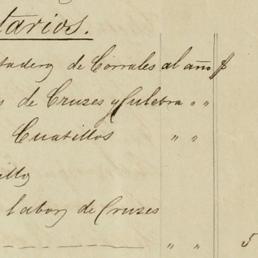 tarios.
tadero de Corrales al año $
s de Cruses y Culebra " "
Cuatillos " "
illo
labor de Cruses
" " 5